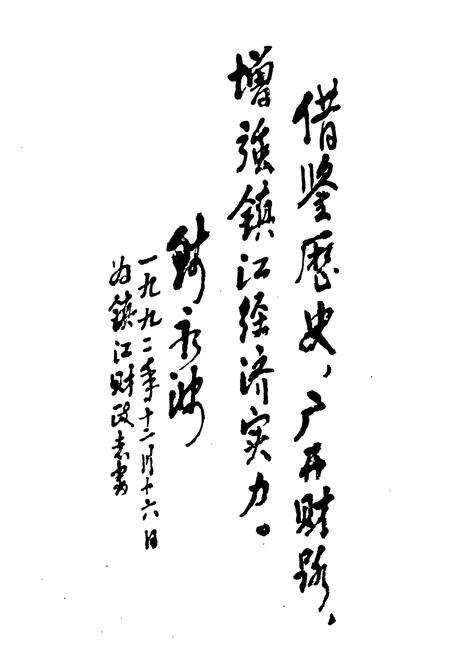 借鉴歷史，广开财路，
增强鎮江经济实力。
钱永波
一九九二年十二月十六日
为鎮江财政志书